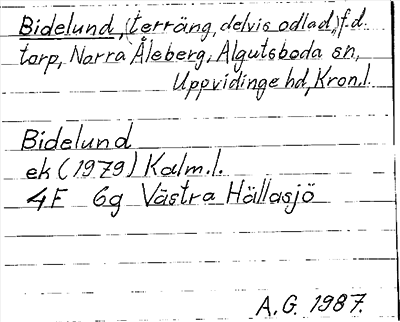 Bidelund, (terräng, delvis odlad,) f.d.
torp, Norra Åleberg, Algutsboda sn,
Uppvidinge hd, Kron.l.
Bidelund
ek (1979) Kalm.l.
4F 6g Västra Hällasjö
A.G. 1987.